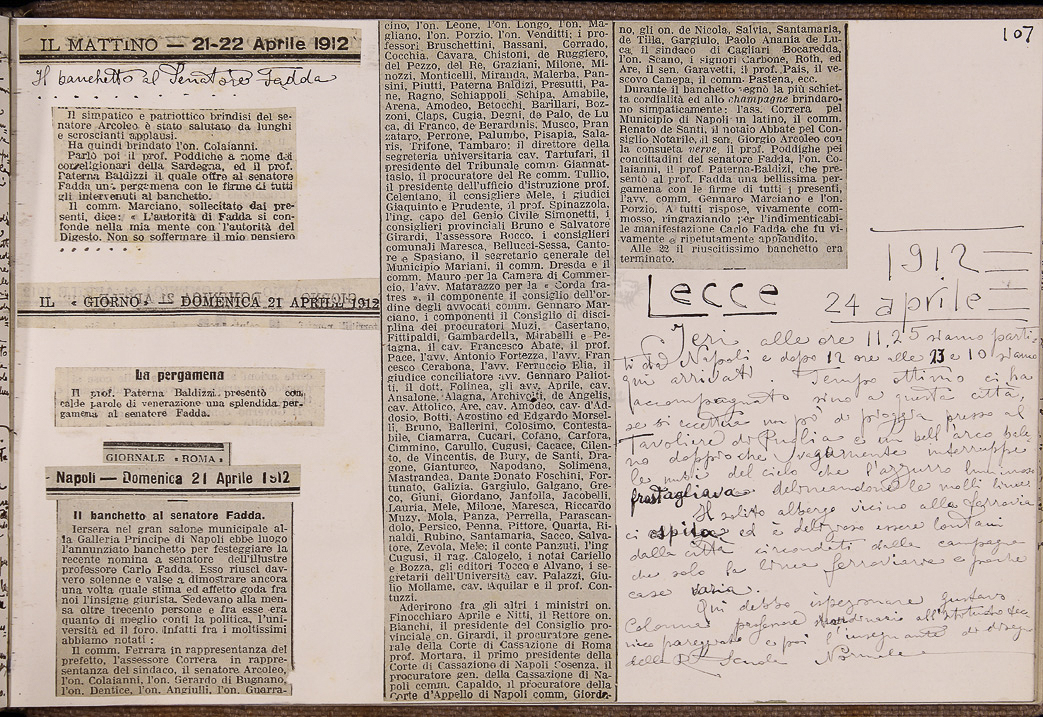 107
IL MATTINO — 21-22 Aprile 1912
Il banchetto al Senatore Fadda
Il simpatico e patriottico brindisi del se-
natore Arcoleo è stato salutato da lunghi
e scroscianti applausi.
Ha quindi brindato l'on. Colaianni.
Parlò poi il prof. Poddiche a nome dei
correligionari della Sardegna, ed il prof.
Paterna Baldizzi il quale offre al senatore
Fadda una pergamena con le firme di tutti
gli intervenuti al banchetto.
Il comm. Marciano, sollecitato dai pre-
senti, dice: « L'autorità di Fadda si con-
fonde nella mia mente con l'autorità del
Digesto. Non so soffermare il mio pensiero
IL « GIORNO » DOMENICA 21 APRILE 1912
La pergamena
Il prof. Paterna Baldizzi presentò con
calde parole di venerazione una splendida per-
gamena al senatore Fadda.
GIORNALE «ROMA»
Napoli — Domenica 21 Aprile 1912
Il banchetto al senatore Fadda.
Iersera nel gran salone municipale al-
la Galleria Principe di Napoli ebbe luogo
l'annunziato banchetto per festeggiare la
recente nomina a senatore dell'illustre
professore Carlo Fadda. Esso riuscì dav-
vero solenne e valse a dimostrare ancora
una volta quale stima ed affetto goda fra
noi l'insigne giurista. Sedevano alla men-
sa oltre trecento persone e fra esse era
quanto di meglio conti la politica, l'uni-
versità ed il foro. Infatti fra i moltissimi
abbiamo notati :
Il comm. Ferrara in rappresentanza del
prefetto, l'assessore Correra in rappre-
sentanza del sindaco, il senatore Arcoleo,
l'on. Colaianni, l'on. Gerardo di Bugnano,
l'on. Dentice, l'on. Angiulli, l'on. Guarra-
cino, l'on. Leone, l'on. Longo, l'on. Ma-
gliano, l'on. Porzio, l'on. Venditti; i pro-
fessori Bruschettini, Bassani, Corrado,
Cocchia, Cavara, Chistoni, de Ruggiero,
del Pezzo, del Re, Graziani, Milone, Mi-
nozzi, Monticelli, Miranda, Malerba, Pan-
sini, Piutti, Paterna Baldizi, Presutti, Pa-
ne, Ragno, Schiappoli Schipa, Amabile,
Arena, Amodeo, Betocchi, Barillari, Boz-
zoni, Claps, Cugia, Degni, de Palo, de Lu
ca, di Franco, de Berardinis, Musco, Pran
zataro, Perrone, Palumbo, Pisapia, Sala-
ris, Trifone, Tambaro; il direttore della
segreteria universitaria cav. Tartufari, il
presidente del Tribunale comm. Giannat-
tasio, il procuratore del Re comm. Tullio,
il presidente dell'ufficio d'istruzione prof.
Celentano, il consigliere Mele, i giudici
Giaquinto e Prudente, il prof. Spinazzola,
l'ing. capo del Genio Civile Simonetti, i
consiglieri provinciali Bruno e Salvatore
Girardi, l'assessore Rocco, i consiglieri
comunali Maresca, Bellucci-Sessa, Canto-
re e Spasiano, il segretario generale del
Municipio Mariani, il comm. Dresda e il
comm. Mauro per la Camera di Commer-
cio, l'avv. Matarazzo per la « Corda fra-
tres », il componente il consiglio dell'or-
dine degli avvocati comm. Gennaro Mar-
ciano, i componenti il Consiglio di disci-
plina dei procuratori Muzj, Casertano,
Fittipaldi, Gambardella, Mirabelli e Pe-
tagna, il cav. Francesco Abate, il prof.
Pace, l'avv. Antonio Fortezza, l'avv. Fran
cesco Cerabona, l'avv. Ferruccio Elia, il
giudice conciliatore avv. Gennaro Paliot-
ti, il dott. Folinea, gli avv. Aprile, cav.
Ansalone, Alagna, Archivolti, de Angelis,
cav. Attolico, Are, cav. Amodeo, cav. d'Ad-
dosio, Botti, Agostino ed Edgardo Morsel-
li, Bruno, Ballerini, Colosimo, Contesta-
bile, Ciamarra, Cucari, Cofano, Carfora,
Cimmino, Carullo, Cugusi, Cacace, Cilen-
to, de Vincentis, de Bury, de Santi, Dra-
gone, Gianturco, Napodano, Solimena,
Mastrandea, Dante Donato Foschini, For-
tunato, Galizia, Gargiulo, Galgano, Gre-
co, Giuni, Giordano, Janfolla, Jacobelli,
Lauria, Mele, Milone, Maresca, Riccardo
Muzy, Mola, Panza, Perrella, Parascan-
dolo, Persico, Penna, Pittore, Quarta, Ri-
naldi, Rubino, Santamaria, Sacco, Salva-
tore, Zevola, Mele; il conte Panzuti, l'ing
Cugusi, il rag. Calogelo, i notai Cariello
e Bozza, gli editori Tocco e Alvano, i se-
gretarii dell'Università cav. Palazzi, Giu-
lio Mollame, cav. Aquilar e il prof. Con-
tuzzi.
Aderirono fra gli altri i ministri on.
Finocchiaro Aprile e Nitti, il Rettore on.
Bianchi, il presidente del Consiglio pro-
vinciale on. Girardi, il procuratore gene-
rale della Corte di Cassazione di Roma
prof. Mortara, il primo presidente della
Corte di Cassazione di Napoli Cosenza, il
procuratore gen. della Cassazione di Na-
poli comm. Capaldo, il procuratore della
Corte d'Appello di Napoli comm, Giorda-
no, gli on. de Nicola, Salvia, Santamaria,
de Tilla, Gargiulo, Paolo Anania de Lu-
ca, il sindaco di Cagliari Bocaredda,
l'on. Scano, i signori Carbone, Roth, ed
Are, il sen. Garavetti, il prof. Pais, il ve-
scovo Canepa, il comm. Pastena, ecc.
Durante il banchetto regnò la più schiet-
ta cordialità ed allo champagne brindaro-
no simpaticamente: l'ass. Correra pel
Municipio di Napoli in latino, il comm.
Renato de Santi, il notaio Abbate pel Con-
siglio Notarile, il sen. Giorgio Arcoleo con
la consueta verve, il prof. Poddighe pei
concittadini del senatore Fadda, l'on. Co-
laianni, il prof. Paterna-Baldizi, che pre-
sentò al prof. Fadda una bellissima per-
gamena con le firme di tutti i presenti,
l'avv. comm. Gennaro Marciano e l'on.
Porzio. A tutti rispose, vivamente com-
mosso, ringraziando per l'indimenticabi-
le manifestazione Carlo Fadda che fu vi-
vamente e ripetutamente applaudito.
Alle 22 il riuscitissimo banchetto era
terminato.
1912
Lecce 24 aprile
Ieri alle ore 11,25 siamo parti
ti da Napoli e dopo 12 ore alle 23 e 10 siamo
qui arrivati. Tempo ottimo ci ha
accompagnato sino a questa città,
se si eccettua un pò di pioggia presso al
Tavoliere di Puglia e un bell'arco bale
no doppio che vagamente interruppe
le nubi del cielo che l'azzurro luminoso
frastagliava delineandone le molli linee
Il solito albergo vicino alla ferrovia
ci ospita ed è delizioso essere lontani
dalla città circondati dalle campagne
che solo la linea ferroviaria e poche
case
Qui debbo ispezionare Gustavo
Colonna professore straordinario all'Istituto tec
nico pareggiato e poi l'insegnante di disegno
della R. Scuola Normale